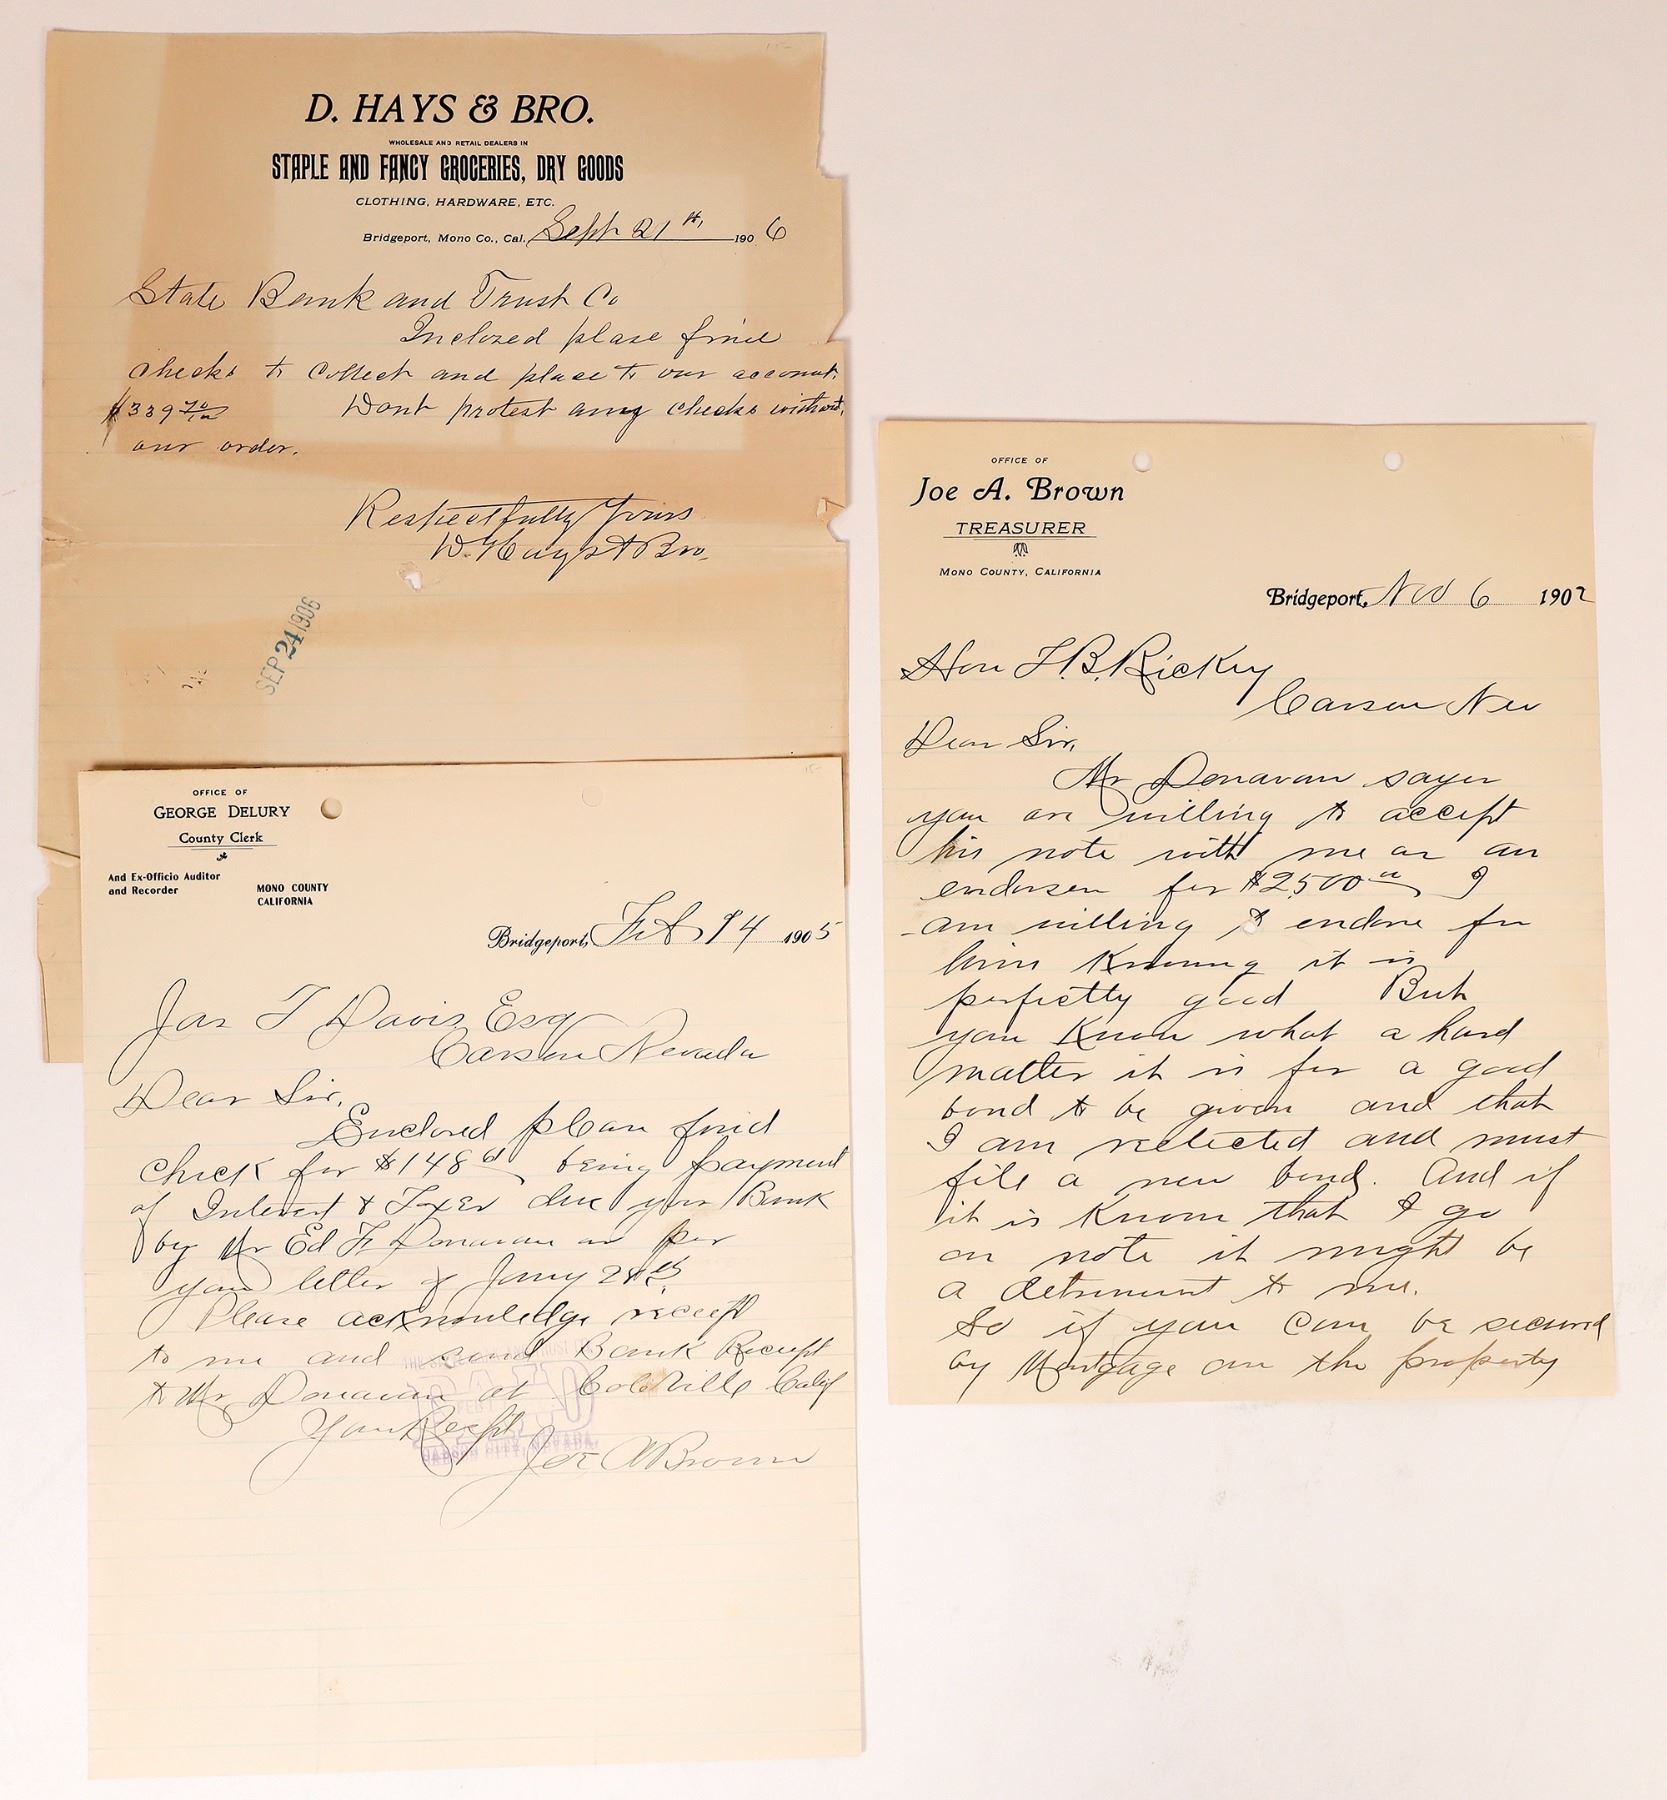 D. HAYS & BRO.
WHOLESALE AND RETAIL DEALERS IN
STAPLE AND FANCY GROCERIES, DRY GOODS
CLOTHING, HARDWARE, ETC.
Bridgeport, Mono Co., Cal. Sept 21th, 1906
State Bank and Trust Co
Inclozed plase find
checks to collect and place to our account.
$339 70/00 Dont protest any checks without
our order.
Respectfully Yours
D. Hays & Bro.
SEP 24 1906
OFFICE OF
GEORGE DELURY
County Clerk
And Ex-Officio Auditor
and Recorder
MONO COUNTY
CALIFORNIA
Bridgeport, Feb 14 1905
Jas T Davis Esq
Carson Nevada
Dear Sir,
Enclosed pleas find
check for $148 being payment
of Interest & Taxes due your Bank
by Mr Ed F Donavan as per
your letter of Jany 28th
Please acknowledge receipt
to me and send Bank Receipt
to Mr Donavan at Coleville Calif
Yours Respt
Joe A Brown
CARSON CITY, NEVADA
OFFICE OF
Joe A. Brown
TREASURER
MONO COUNTY, CALIFORNIA
Bridgeport, Nov 6 1902
Hon T.B. Rickey
Carson Nev
Dear Sir,
Mr Donavan sayes
you are willing to accept
his note with me as an
endorser for $2500 I
am willing to endorse for
him knowing it is
perfectly good But
you know what a hard
matter it is for a good
bond to be given and that
I am relected and must
file a new bond. And if
it is known that I go
on note it might be
a detriment to me.
So if you can be secured
by Mortgage on the property